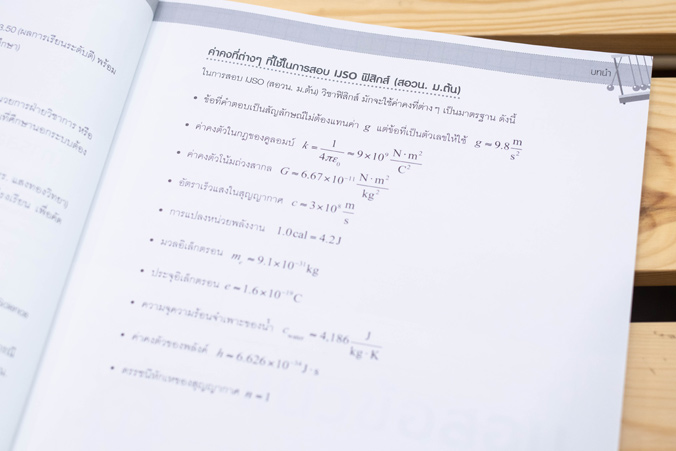 3.50 (ผลการเรียนระดับดี) พร้อม
บทนำ
ค่าคงที่ต่างๆ ที่ใช้ในการสอบ IJSO ฟิสิกส์ (สอวน. ม.ต้น)
ในการสอบ IJSO (สอวน. ม.ต้น) วิชาฟิสิกส์ มักจะใช้ค่าคงที่ต่างๆ เป็นมาตรฐาน ดังนี้
• ข้อที่คำตอบเป็นสัญลักษณ์ไม่ต้องแทนค่า g แต่ข้อที่เป็นตัวเลขให้ใช้ g ≈ 9.8 m/s²
• ค่าคงตัวในกฎของคูลอมบ์ k = 1/4πε₀ ≈ 9×10⁹ N·m²/C²
• ค่าคงตัวโน้มถ่วงสากล G ≈ 6.67×10⁻¹¹ N·m²/kg²
• อัตราเร็วแสงในสุญญากาศ c ≈ 3×10⁸ m/s
• การแปลงหน่วยพลังงาน 1.0cal = 4.2J
• มวลอิเล็กตรอน mₑ ≈ 9.1×10⁻³¹kg
• ประจุอิเล็กตรอน e ≈ 1.6×10⁻¹⁹C
• ความจุความร้อนจำเพาะของน้ำ c_water ≈ 4,186 J/kg·K
• ค่าคงตัวของพลังค์ h ≈ 6.626×10⁻³⁴J·s
• ดรรชนีหักเหของสุญญากาศ n ≈ 1